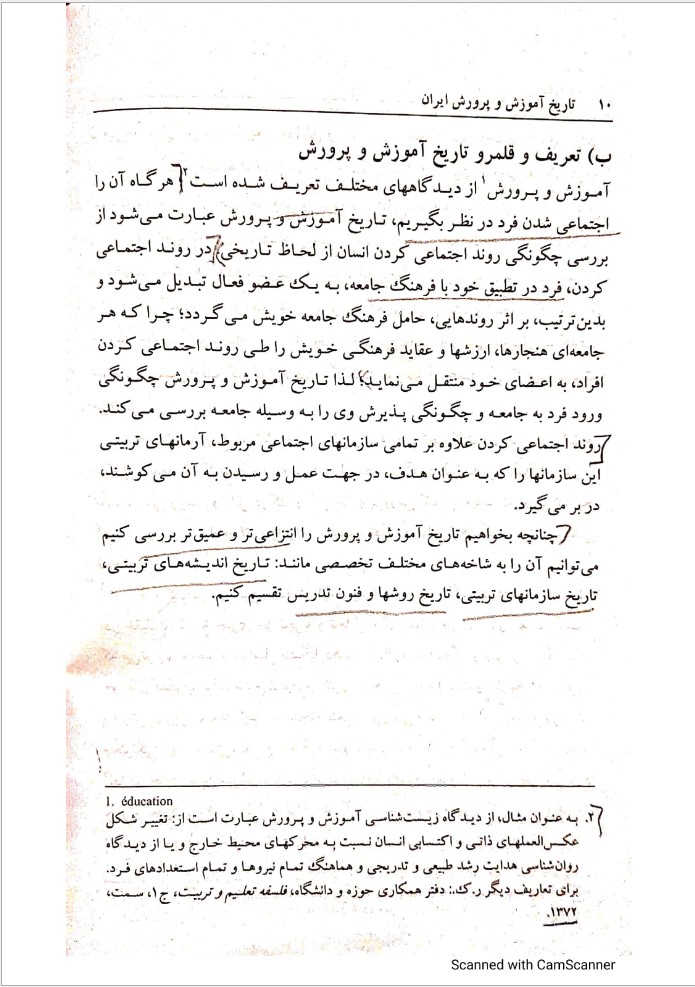 ۱۰ تاریخ آموزش و پرورش ایران
ب) تعریف و قلمرو تاریخ آموزش و پرورش
آموزش و پرورش۱ از دیدگاههای مختلف تعریف شده است۲ هرگاه آن را
اجتماعی شدن فرد در نظر بگیریم، تاریخ آموزش و پرورش عبارت می‌شود از
بررسی چگونگی روند اجتماعی کردن انسان از لحاظ تاریخی؛ در روند اجتماعی
کردن، فرد در تطبیق خود با فرهنگ جامعه، به یک عضو فعال تبدیل می‌شود و
بدین‌ترتیب، بر اثر روندهایی، حامل فرهنگ جامعه خویش می‌گردد؛ چرا که هر
جامعه‌ای هنجارها، ارزشها و عقاید فرهنگی خویش را طی روند اجتماعی کردن
افراد، به اعضای خود منتقل می‌نماید؛ لذا تاریخ آموزش و پرورش چگونگی
ورود فرد به جامعه و چگونگی پذیرش وی را به وسیله جامعه بررسی می‌کند.
روند اجتماعی کردن علاوه بر تمامی سازمانهای اجتماعی مربوط، آرمانهای تربیتی
این سازمانها را که به عنوان هدف، در جهت عمل و رسیدن به آن می‌کوشند،
در بر می‌گیرد.
چنانچه بخواهیم تاریخ آموزش و پرورش را انتزاعی‌تر و عمیق‌تر بررسی کنیم
می‌توانیم آن را به شاخه‌های مختلف تخصصی مانند: تاریخ اندیشه‌های تربیتی،
تاریخ سازمانهای تربیتی، تاریخ روشها و فنون تدریس تقسیم کنیم.
1. éducation
۲. به عنوان مثال، از دیدگاه زیست‌شناسی آموزش و پرورش عبارت است از: تغییر شکل
عکس‌العملهای ذاتی و اکتسابی انسان نسبت به محرکهای محیط خارج و یا از دیدگاه
روان‌شناسی هدایت رشد طبیعی و تدریجی و هماهنگ تمام نیروها و تمام استعدادهای فرد.
برای تعاریف دیگر ر.ک.: دفتر همکاری حوزه و دانشگاه، فلسفه تعلیم و تربیت، ج ۱، سمت،
۱۳۷۲.
Scanned with CamScanner